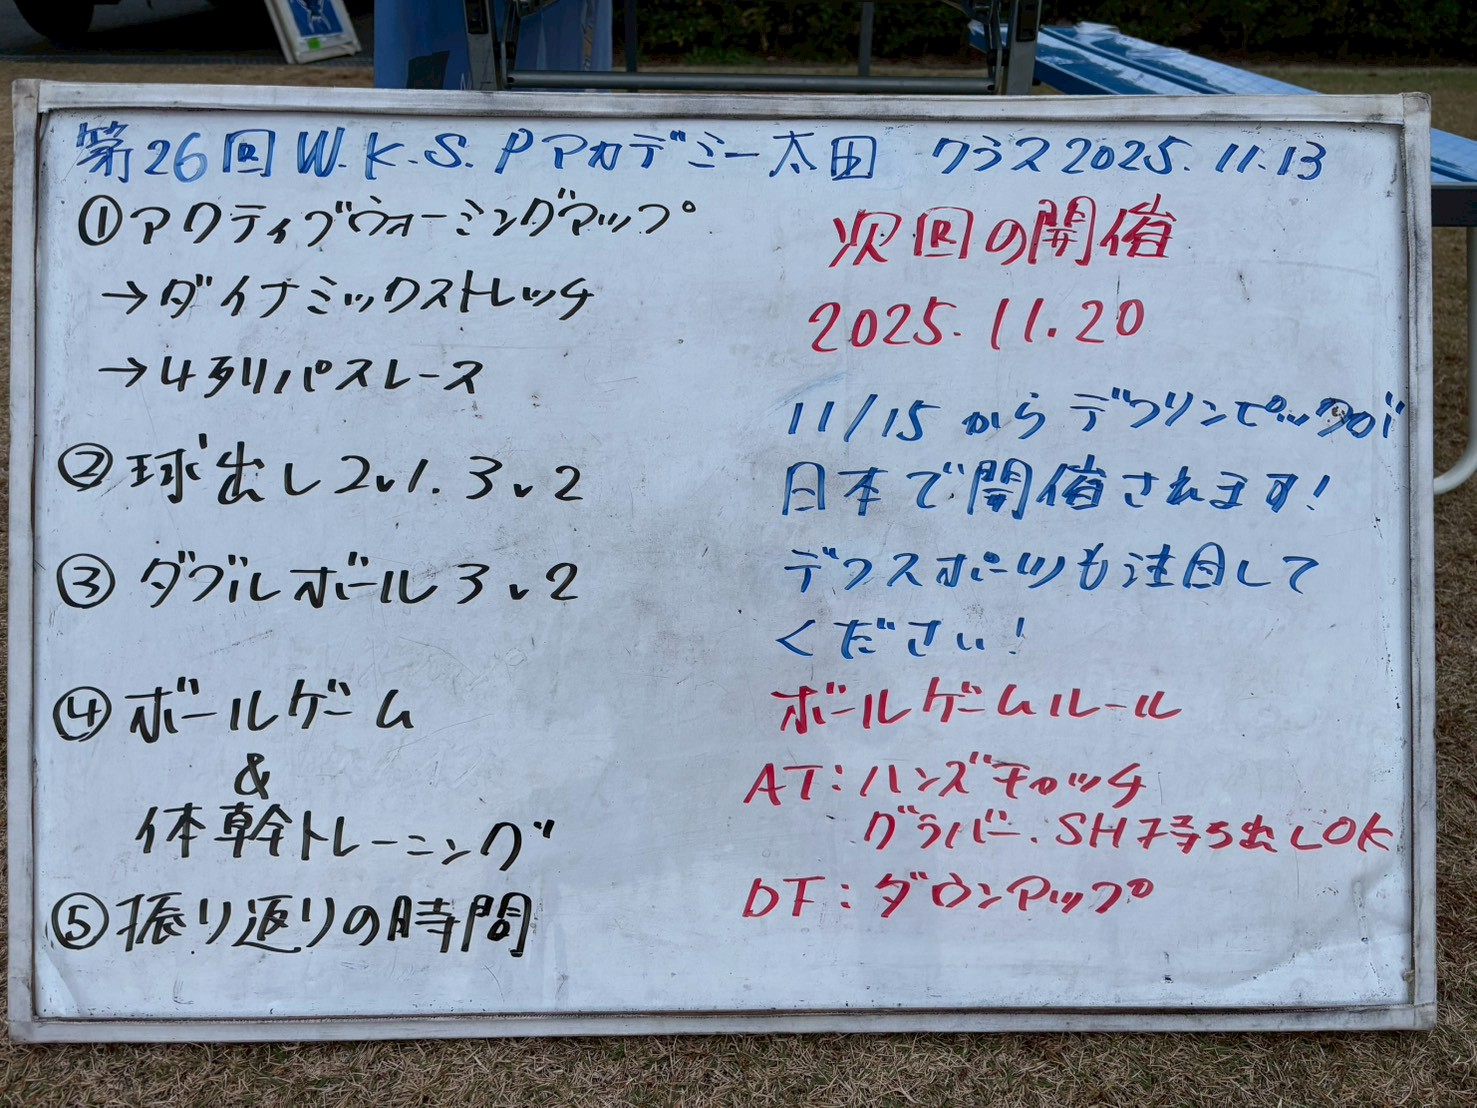 第26回W.K.S.Pアカデミー太田 クラス2025.11.13
①アクティブウォーミングアップ
→ダイナミックストレッチ
→4列パスレース
②球出し2v1.3v2
③ダブルボール3v2
④ボールゲーム
&
体幹トレーニング
⑤振り返りの時間
次回の開催
2025.11.20
11/15からデフリンピックが
日本で開催されます!
デフスポーツも注目して
ください!
ボールゲームルール
AT:ハンズキャッチ
グラバー.SH持ち出しOK
DF:ダウンアップ